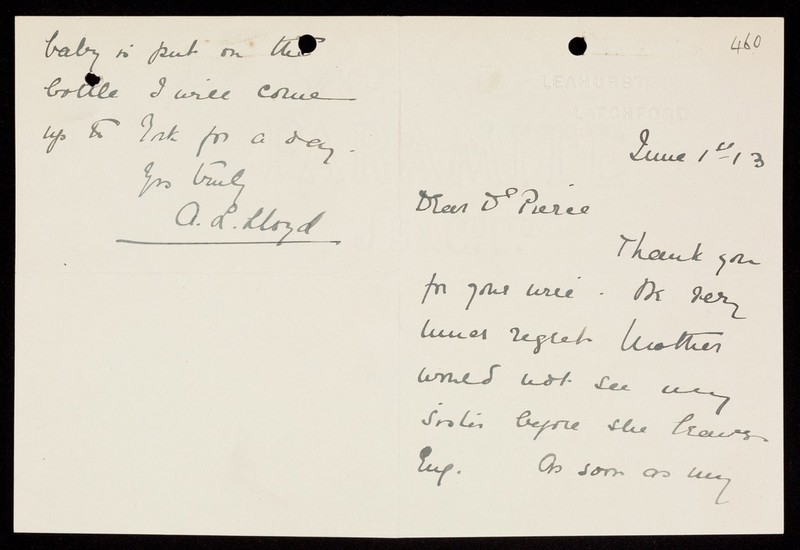 460
June 1st 13
Dear Dr Pierce
Thank you
for your wire. We very
much regret Mother
would not see my
sister before she leaves
Eng. As soon as my
baby is put on the
bottle I will come
up to York for a day.
Yrs truly
A. L. Lloyd